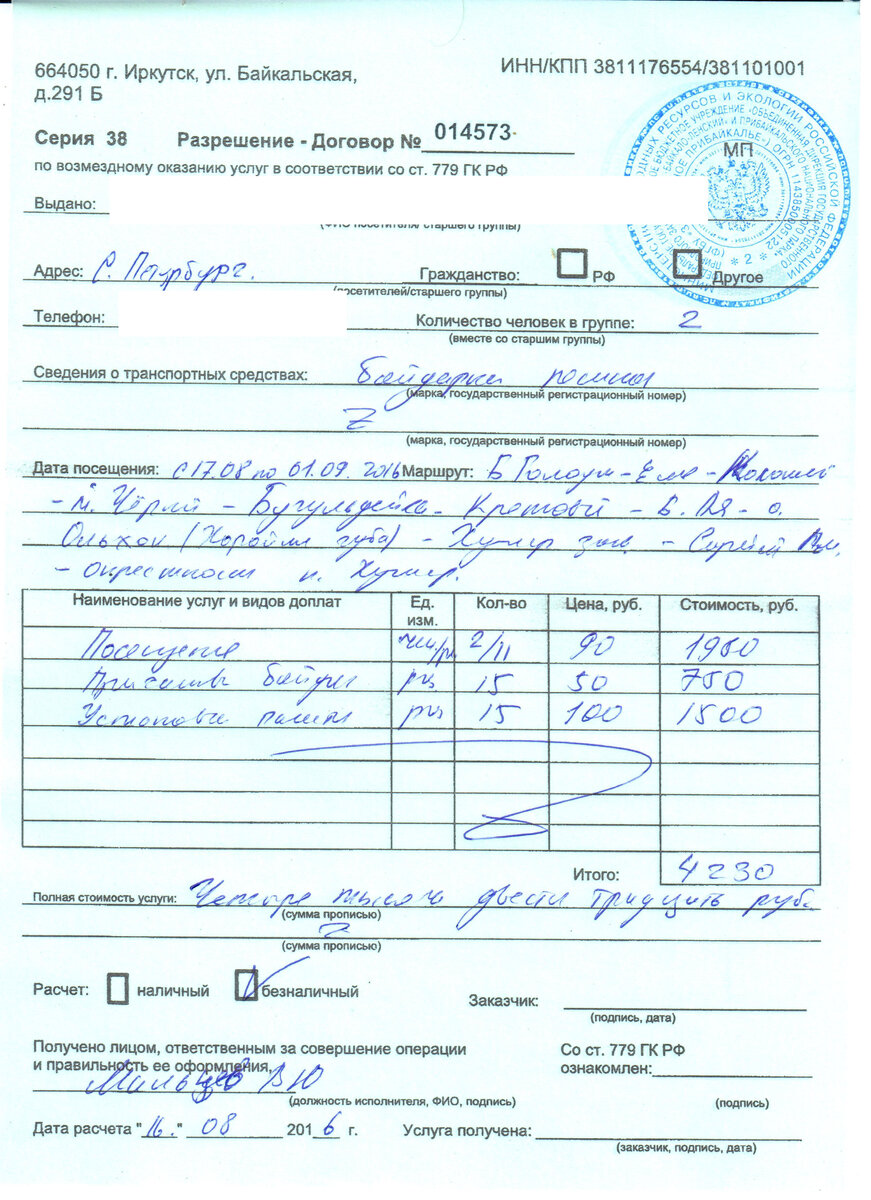 664050 г. Иркутск, ул. Байкальская, ИНН/КПП 3811176554/381101001
д.291 Б
Серия 38 Разрешение - Договор № 014573
МП
по возмездному оказанию услуг в соответствии со ст. 779 ГК РФ
Выдано:
(ФИО посетителя/ старшего группы)
Адрес: С. Петербург. Гражданство: РФ Другое
(посетителей/старшего группы)
Телефон: Количество человек в группе: 2
(вместе со старшим группы)
Сведения о транспортных средствах: байдарки
(марка, государственный регистрационный номер)
Z
(марка, государственный регистрационный номер)
Дата посещения: с 17.08 по 01.09. 2016 Маршрут: Б Голоуст -
- м. Чёрный - Бугульдейка - Крестовый - - о.
Ольхон ( губа) - Хужир -
- окрестности п. Хужир.
Наименование услуг и видов доплат Ед. изм. Кол-во Цена, руб. Стоимость, руб.
Посещение 2/11 90 1980
15 50 750
Установка 15 100 1500
Итого: 4230
Полная стоимость услуги: Четыре тысячи двести тридцать руб.
(сумма прописью)
Z
(сумма прописью)
Расчет: наличный безналичный
Заказчик:
(подпись, дата)
Получено лицом, ответственным за совершение операции Со ст. 779 ГК РФ
и правильность ее оформления, ознакомлен:
Мальцев В Ю
(должность исполнителя, ФИО, подпись) (подпись)
Дата расчета "16." 08 2016 г. Услуга получена:
(заказчик, подпись, дата)